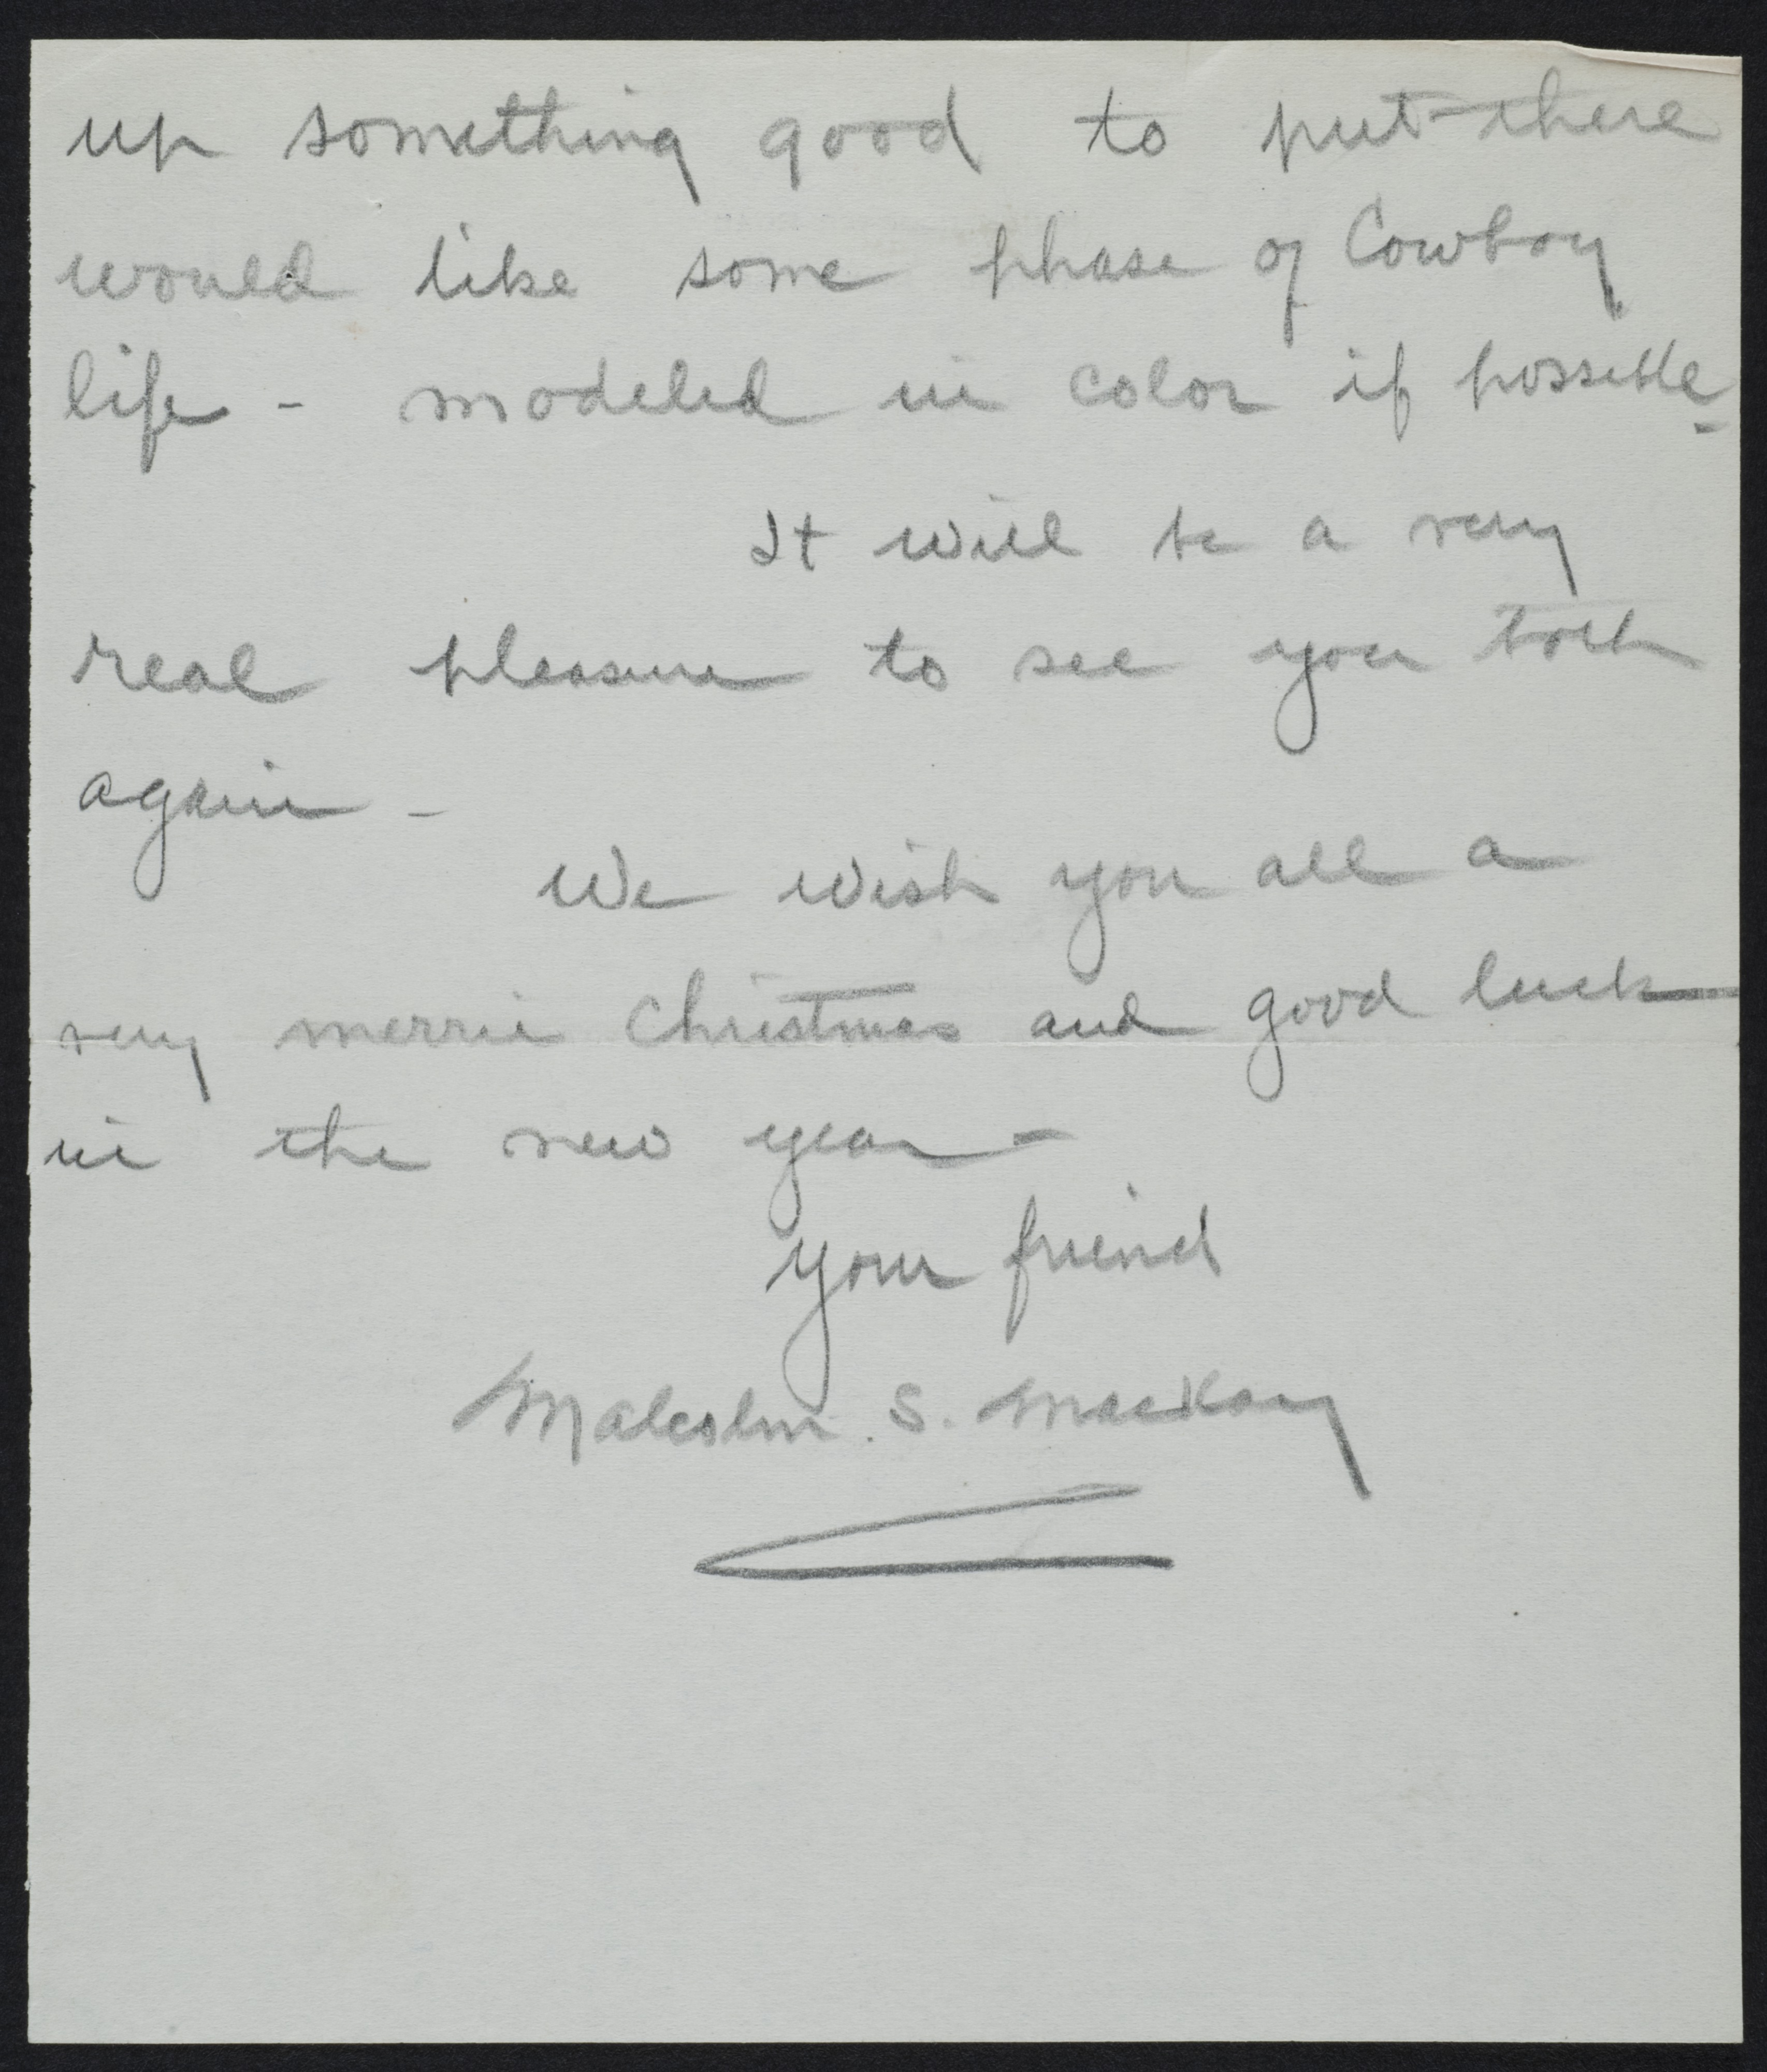 up something good to put there
would like some phase of Cowboy
life - modeled in color if possible -
It will be a very
real pleasure to see you both
again -
We wish you all a
very merrie Christmas and good luck
in the new year -
Your friend
Malcolm. S. Mackay